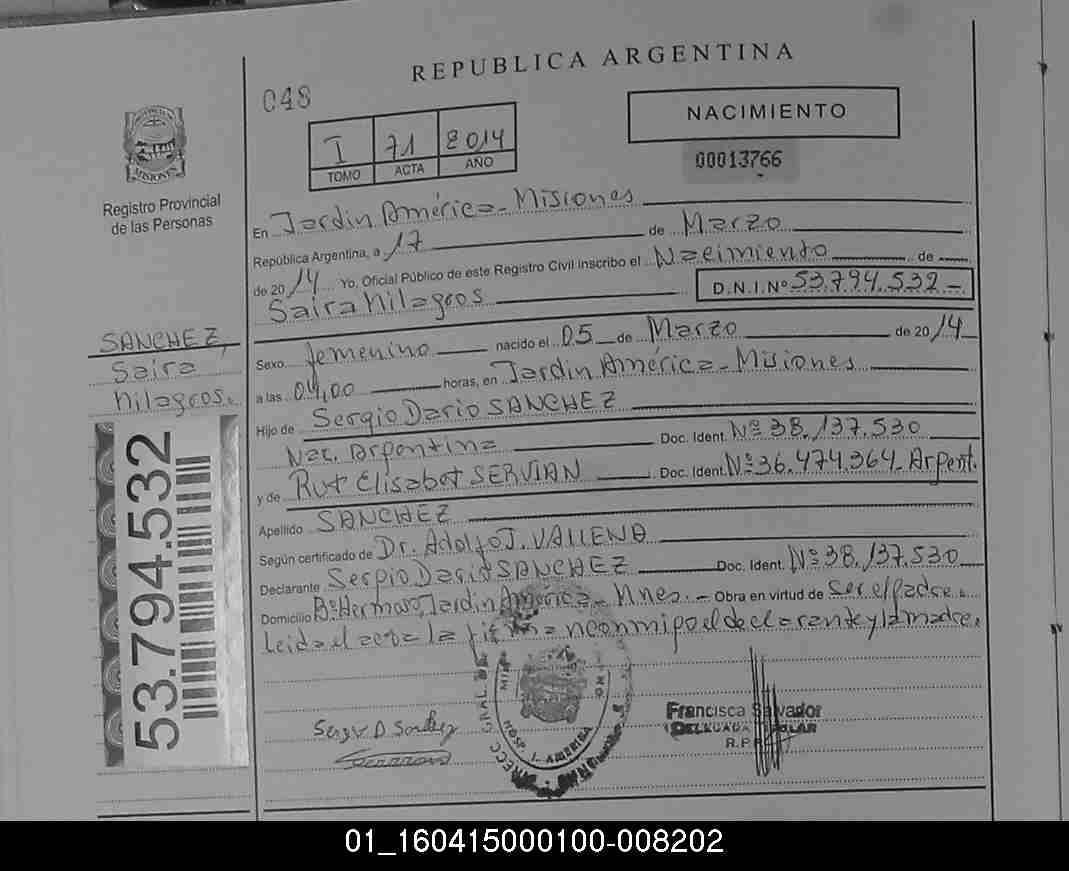 REPUBLICA ARGENTINA
048
NACIMIENTO
I 71 2014
TOMO ACTA AÑO
00013766
MISIONES
Registro Provincial
de las Personas
En Jardin América - Misiones
República Argentina, a 17 de Marzo
de 2014 Yo, Oficial Público de este Registro Civil inscribo el Nacimiento de
Saira Milagros D.N.I.Nº 53.794.532 -
SANCHEZ,
Saira
Milagros.
53.794.532
Sexo femenino nacido el 05 de Marzo de 2014
a las 04,00 horas, en Jardin América - Misiones
Hijo de Sergio Dario SANCHEZ
Nac. Argentina Doc. Ident. Nº 38.137.530
y de Rut Elisabet SERVIAN Doc. Ident. Nº 36.474.364 - Argent.
Apellido SANCHEZ
Según certificado de Dr. Adolfo J.
Declarante Sergio Dario SANCHEZ Doc. Ident. Nº 38.137.530
Domicilio Bº Hermoso, Jardin América - Mnes. - Obra en virtud de Ser el padre.
Leida el acta la firman conmigo el declarante y la madre.
Sergio D Sanchez
HOSP. J. AMERICA
Francisca Salvador
DELEGADA
R.P.
01_160415000100-008202